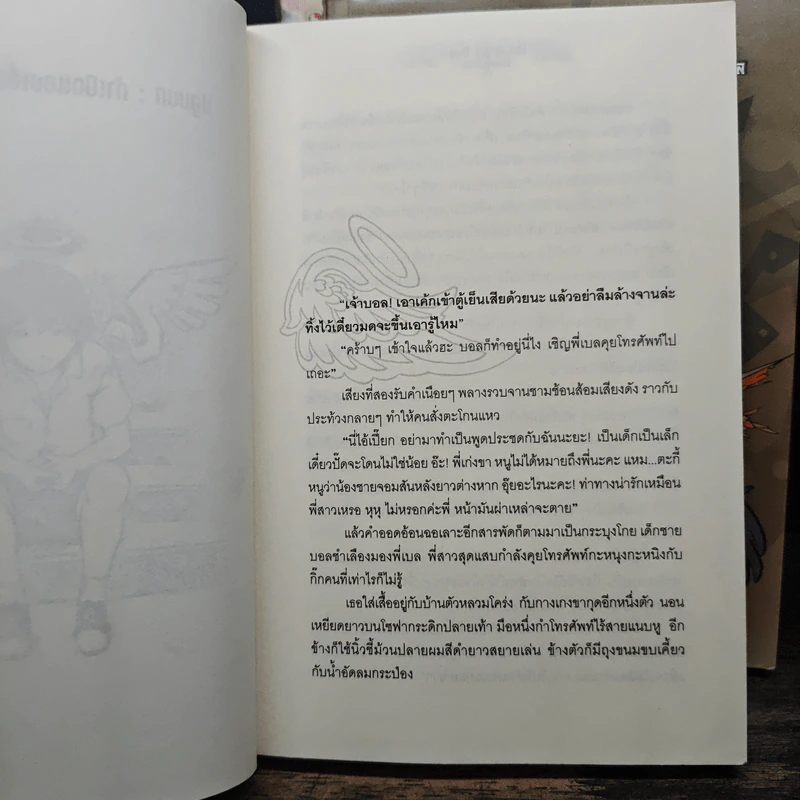 "เจ้าบอล! เอาเค้กเข้าตู้เย็นเสียด้วยนะ แล้วอย่าลืมล้างจานล่ะ
ทิ้งไว้เดี๋ยวมดจะขึ้นเอารู้ไหม"
"คร้าบๆ เข้าใจแล้วฮะ บอลก็ทำอยู่นี่ไง เชิญพี่เบลคุยโทรศัพท์ไป
เถอะ"
เสียงที่สองรับคำเนือยๆ พลางรวบจานชามช้อนส้อมเสียงดัง ราวกับ
ประท้วงกลายๆ ทำให้คนสั่งตะโกนแหว
"นี่ไอ้เปี๊ยก อย่ามาทำเป็นพูดประชดกับฉันนะยะ! เป็นเด็กเป็นเล็ก
เดี๋ยวปั๊ดจะโดนไม่ใช่น้อย อ๊ะ! พี่เก่งขา หนูไม่ได้หมายถึงพี่นะคะ แหม...ตะกี้
หนูว่าน้องชายจอมสันหลังยาวต่างหาก อุ๊ยอะไรนะคะ! ท่าทางน่ารักเหมือน
พี่สาวเหรอ หุหุ ไม่หรอกค่ะพี่ หน้ามันผ่าเหล่าจะตาย"
แล้วคำออดอ้อนฉอเลาะอีกสารพัดก็ตามมาเป็นกระบุงโกย เด็กชาย
บอลชำเลืองมองพี่เบล พี่สาวสุดแสบกำลังคุยโทรศัพท์กะหนุงกะหนิงกับ
กิ๊กคนที่เท่าไรก็ไม่รู้
เธอใส่เสื้ออยู่กับบ้านตัวหลวมโคร่ง กับกางเกงขากุดอีกหนึ่งตัว นอน
เหยียดยาวบนโซฟากระดิกปลายเท้า มือหนึ่งกำโทรศัพท์ไร้สายแนบหู อีก
ข้างก็ใช้นิ้วชี้ม้วนปลายผมสีดำยาวสยายเล่น ข้างตัวก็มีถุงขนมขบเคี้ยว
กับน้ำอัดลมกระป๋อง